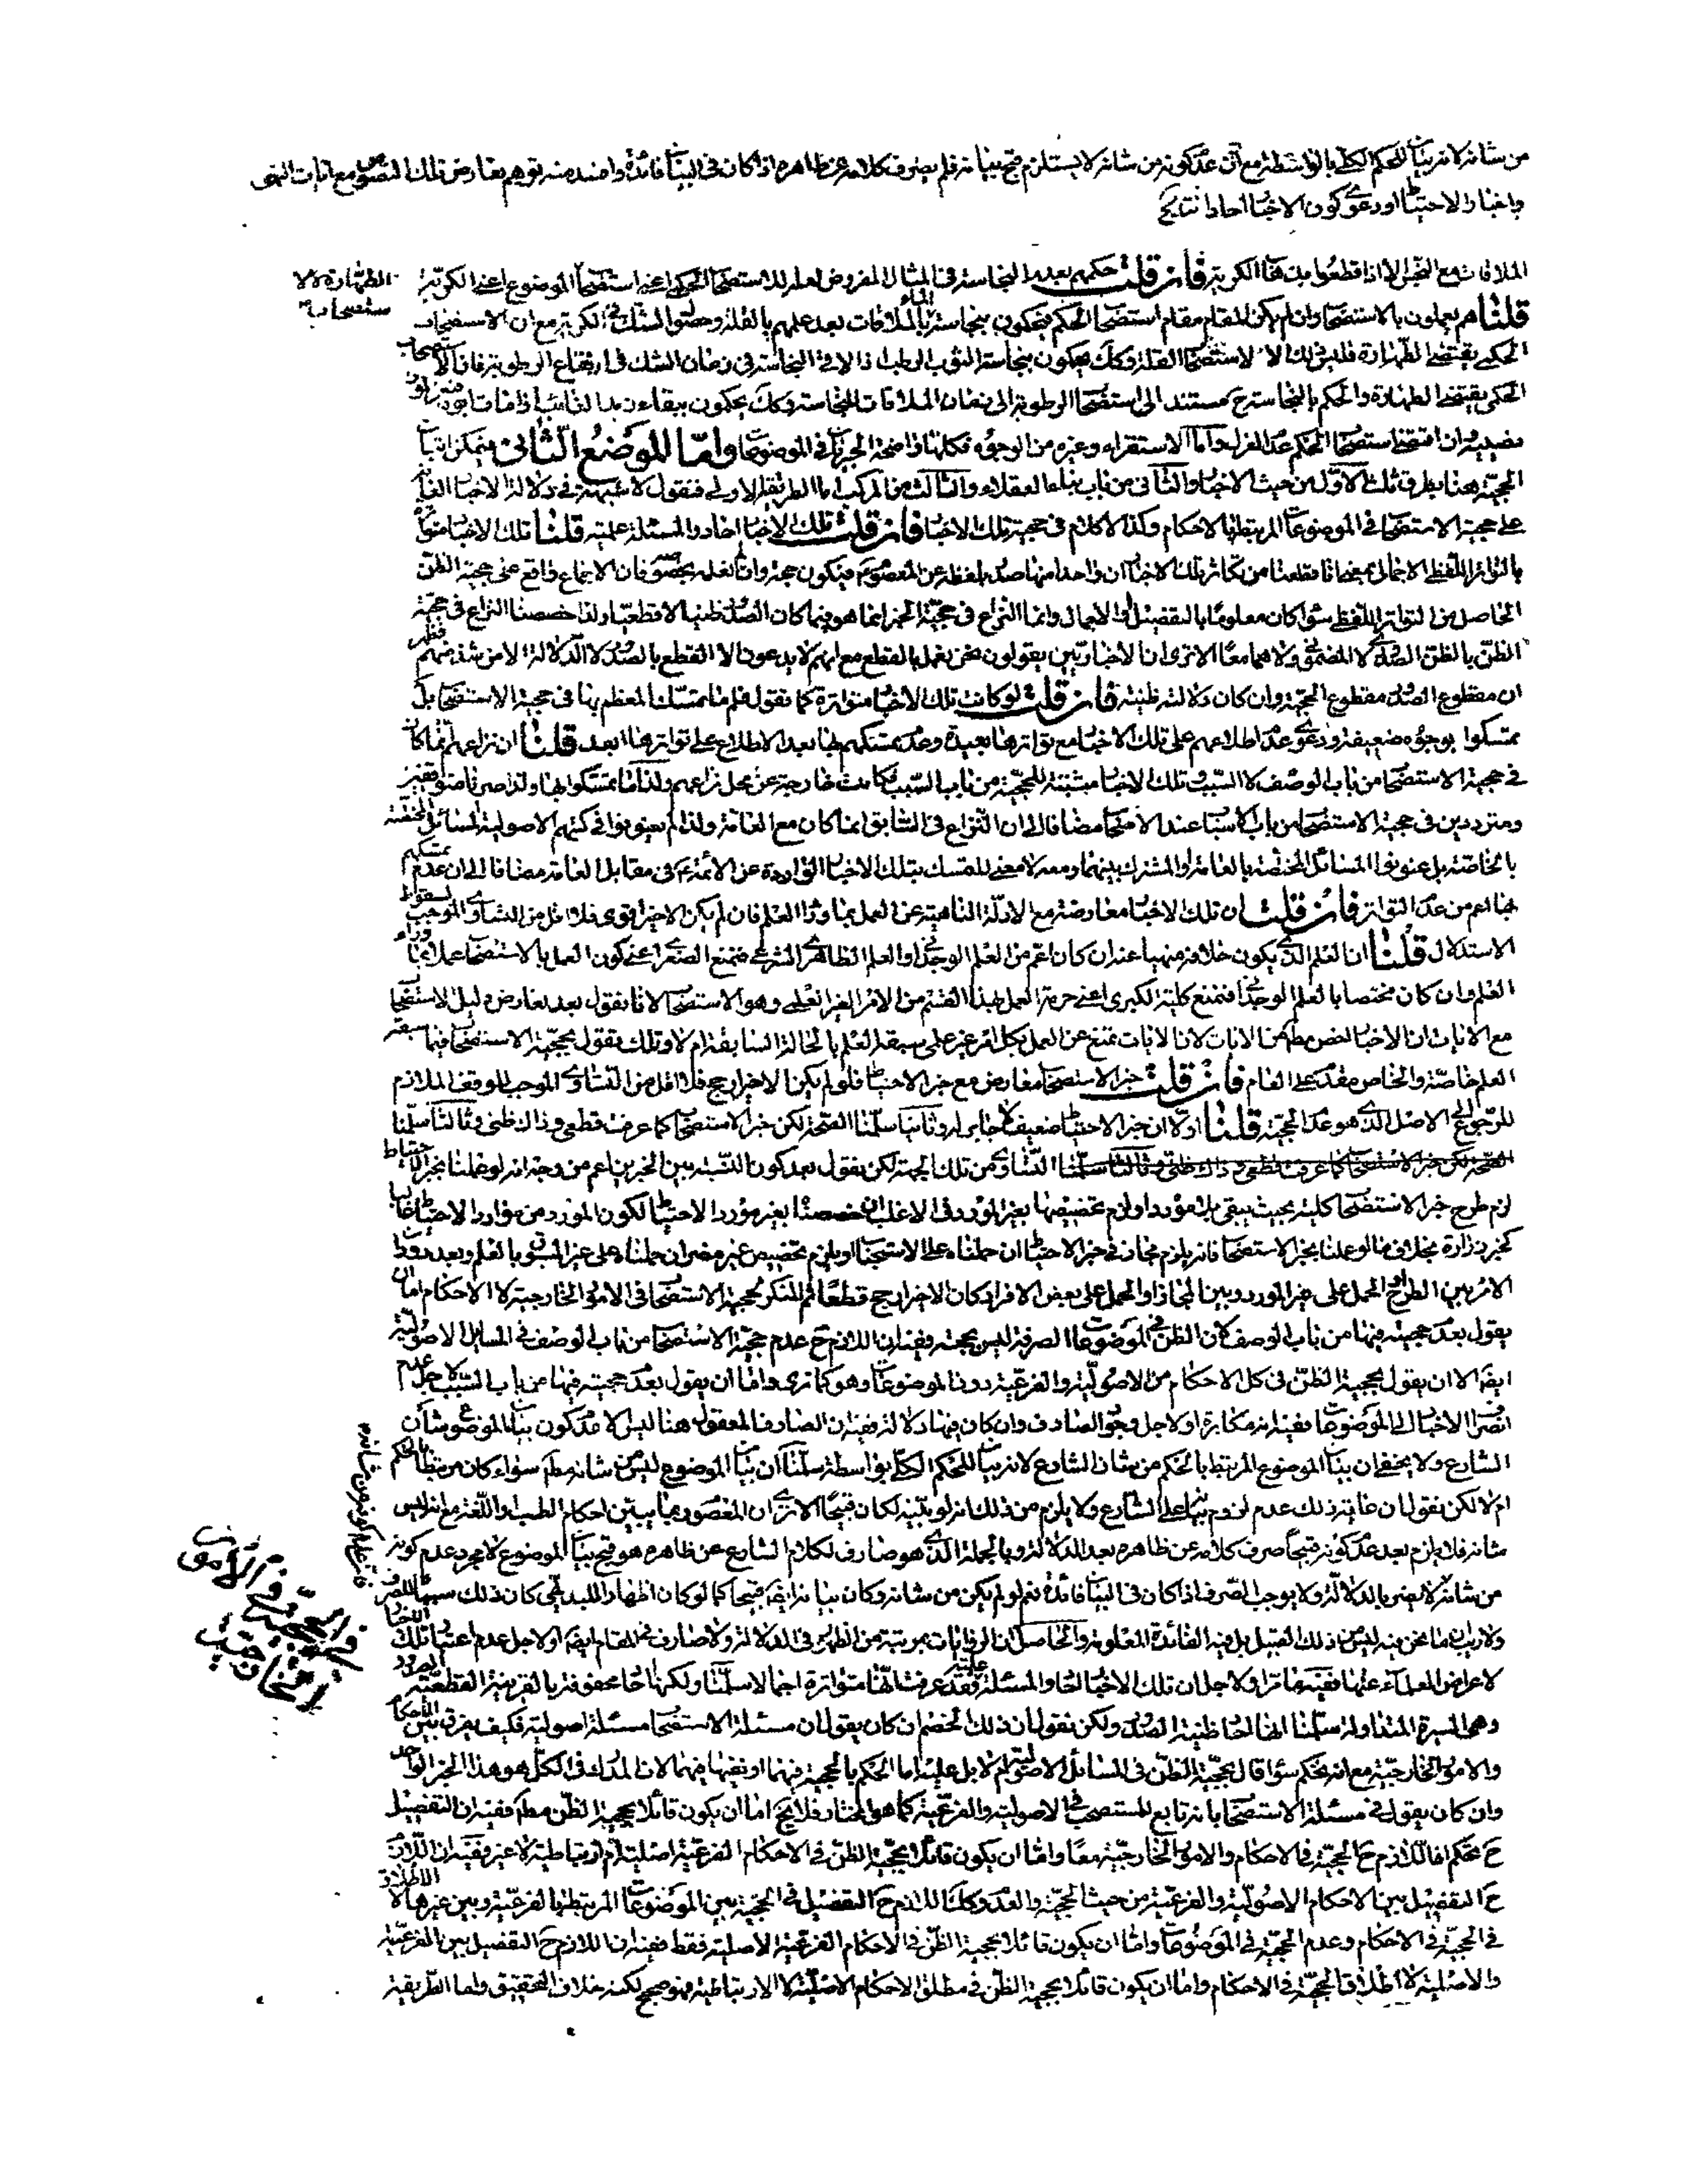 من شانه لانه بيان للحكم الكلى بالواسطة مع ان عدم كونه من شانه لا يستلزم قبح بيانه فلم يصرف كلامه عن ظاهره اذا كان فى البيان فائدة منه توهم تعارض تلك النصوص مع ايات النهى
واخبار الاحتياط او دعوى كون الاخبار احادا نتايج
الملاقات مع النجس الا اذا قطعوا ببقاء الكرية فان قلت حكمهم بعدم النجاسة فى المثال المفروض لعله للاستصحاب الحكمى اعنى استصحاب الطهارة لا لاستصحاب الموضوع اعنى الكرية
قلنا هم يعملون بالاستصحاب وان لم يكن المقام مقام استصحاب الحكم فيحكون بنجاسة الماء بالملاقات بعد علمهم بالقلة وحصول الشك فى الكرية مع ان الاستصحاب
الحكمى يقتضى الطهارة فليس ذلك الا لاستصحاب القلة وكك يحكون بنجاسة الثوب الرطب اذا لاقى النجاسة فى زمان الشك فى ارتفاع الرطوبة فان الاستصحاب
الحكمى يقتضى الطهارة والحكم بالنجاسة ح مستند الى استصحاب الرطوبة الى زمان الملاقات للنجاسة وكك يحكون ببقاء زيد الغائب اذا مات ابوه
نصيبه ان اقتضى استصحاب الحكم عدم العزل واما الاستقراء وغيره من الوجوه فكلها واضحة الجريان فى الموضوعات واما الموضع الثانى فيمكن اثبات
الحجية هنا بطرق ثلث الاول من حيث الاخبار والثانى من باب بناء العقلاء والثالث من المركب اما الطريقة الاولى فنقول لا شبهة فى دلالة الاخبار العامة
على حجية الاستصحاب فى الموضوعات المرتبطة بالاحكام وكذا لا كلام فى حجية تلك الاخبار فان قلت تلك الاخبار احاد والمسئلة علمية قلنا تلك الاخبار متواترة
بالتواتر اللفظى الاجمالى بمعنى انا قطعنا من تكاثر تلك الاخبار ان واحدا منها صدر بلفظه عن المعصوم فيكون حجة وان لم نعلمه بخصوصه فان الاجماع واقع على حجية الظن
الحاصل من التواتر اللفظى سواء كان معلوما بالتفصيل او الاجمال وانما النزاع فى حجية الخبر انما هو فيما كان الصدور ظنيا لا قطعيا ولذا خصصنا النزاع فى حجية
الظن بالظن الصدورى لا المضمونى ولا هما معا الا ترى ان الاخباريين يقولون نحن نعمل بالقطع مع انهم لا يدعون الا القطع بالصدور لا الدلالة الا من شذ منهم فظهر
ان مقطوع الصدور مقطوع الحجية وان كان دلالته ظنية فان قلت لو كانت تلك الاخبار متواترة كما تقول فلم ما تمسك المعظم بها فى حجية الاستصحاب بل
تمسكوا بوجوه ضعيفة ودعوى عدم اطلاعهم على تلك الاخبار مع تواترها بعيدة وعدم تمسكهم بها بعد الاطلاع على تواترها ابعد قلنا ان نزاعهم انما كان
فى حجية الاستصحاب من باب الوصف لا السبب وتلك الاخبار مثبتة للحجية من باب السبب فكانت خارجة عن محل نزاعهم ولذا ما تمسكوا بها
ومترددين فى حجية الاستصحاب من باب الاسباب مضافا الى ان النزاع فى السابق انما كان مع العامة ولذا لم يعنونوا فى كتبهم الاصولية المسائل المختصة
بالخاصة بل عنونوا المسائل المختصة بالعامة او المشترك بينهما ومعه لا معنى للتمسك بتلك الاخبار الواردة عن الائمة ع فى مقابل العامة مضافا الى ان عدم تمسكهم
بها اعم من عدم التواتر فان قلت ان تلك الاخبار معارضة مع الادلة الناهية عن العمل بما وراء العلم فان لم يكن الاخير اقوى فلا اقل من التساوى الموجب لسقوط
الاستدلال قلنا ان العلم الذى يكون خلافه منهيا عنه ان كان اعم من العلم الوجدانى او العلم الظاهرى الشرعى فنمنع الصغرى اعنى كون العمل بالاستصحاب عملا بما وراء
العلم وان كان مختصا بالعلم الوجدانى فنمنع كلية الكبرى اعنى حرمة العمل بهذا القسم من الامر الغير العلمى وهو الاستصحاب لانا نقول بعد تعارض دليل الاستصحاب
مع الايات ان الاخبار اخص مط من الايات لان الايات تمنع عن العمل بكل امر غير علمى سبقه العلم بالحالة السابقة ام لا وتلك تقول بحجية الاستصحاب فيما سبقه
العلم خاصة والخاص مقدم على العام فان قلت خبر الاستصحاب معارض مع خبر الاحتياط فلو لم يكن الاخير ارجح فلا اقل من التساوى الموجب للوقف الملازم
للرجوع الى الاصل الذى هو عدم الحجية قلنا اولا ان خبر الاحتياط ضعيف لا جابر له وثانيا سلمنا الصحة لكن خبر الاستصحاب كما عرفت قطعى وذاك ظنى وثالثا سلمنا
الصحة لكن خبر الاستصحاب كما عرفت قطعى وذاك ظنى وثالثا سلمنا التساوى من تلك الجهة لكن نقول بعد كون النسبة بين الخبرين اعم من وجه انه لو عملنا بخبر الاحتياط
لزم طرح خبر الاستصحاب كلية بحيث يبقى بلا مورد او لزم تخصيصها بغير المورد فى الاغلب ان خصصنا بغير مورد الاحتياط لكون المورد من موارد الاحتياط غالبا
كخبر زرارة بخلاف ما لو عملنا بخبر الاستصحاب فانه يلزم مجاز فى خبر الاحتياط ان حملناه على الاستحباب او يلزم تخصيص غير مضر ان حملناه على غير المسبوق بالعلم وبعد دوران
الامر بين الطرح او الحمل على غير المورد وبين المجاز او الحمل على بعض الافراد كان الاخير ارجح قطعا ثم المنكر لحجية الاستصحاب فى الامور الخارجية لا الاحكام اما ان
يقول بعدم حجيته فيها من باب الوصف لان الظن فى الموضوعات الصرفة ليس بحجة ففيه ان اللازم ح عدم حجية الاستصحاب من باب الوصف فى المسائل الاصولية
ايضا الا ان يقول بحجية الظن فى كل الاحكام من الاصولية والفرعية دون الموضوعات وهو كما ترى واما ان يقول بعدم حجيته فيها من باب السبب لاجل عدم
انصراف الاخبار الى الموضوعات ففيه انه مكابرة او لاجل وجود الصارف وان كان فيها دلالة ففيه ان الصارف المعقول هنا ليس الا عدم كون بيان الموضوع من شان
الشارع ولا يخفى ان بيان الموضوع المرتبط بالحكم من شان الشارع لانه بيان للحكم الكلى بواسطة سلمنا ان بيان الموضوع ليس من شانه مط سواء كان مرتبطا بالحكم
ام لا لكن نقول ان غاية ذلك عدم لزوم بيانها على الشارع ولا يلزم من ذلك انه لو بينه لكان قبيحا الا ترى ان المعصوم ربما يبين احكام الطب واللغة مع انه ليس
شانه فلا يلزم بعد عدم كونه قبيحا صرف كلامه عن ظاهره بعد الدلالة وبالجملة الذى هو صارف لكلام الشارع عن ظاهره هو قبح بيان الموضوع لا مجرد عدم كونه
من شانه لا يضر بالدلالة ولا يوجب الصرف اذا كان فى البيان فائدة نعم لو لم يكن من شانه وكان بيانه ايضا قبيحا كما لو كان اظهارا للبديهى كان ذلك سببا للصرف
ولا ريب ان ما نحن فيه ليس من ذلك القبيل بل فيه الفائدة المعلومة والحاصل ان الروايات مريبة من الظهور فى الدلالة ولا صارف فى المقام ايضا او لاجل عدم اعتبار تلك الاخبار
لاعراض العلماء عنها ففيه ما مر او لاجل ان تلك الاخبار احاد والمسئلة علمية فقد عرفت انها متواترة اجمالا سلمنا ولكنها احاد محفوفة بالقرينة القطعية الصدور
وهى السيرة المتداولة سلمنا انها احاد ظنية الصدور ولكن نقول ان ذلك الخصم ان كان يقول ان مسئلة الاستصحاب مسئلة اصولية فكيف يفرق بين الاحكام
والامور الخارجية مع انه تحكم سواء قال بحجية الظن فى المسائل الاصولية ام لا بل عليه اما الحكم بالحجية فيهما او نفيها فيهما لان المدرك فى الكل هو هذا الخبر الواحد
وان كان يقول فى مسئلة الاستصحاب بانه تابع للمستصحب فى الاصولية والفرعية كما هو المختار فلا يخ اما ان يكون قائلا بحجية الظن مط ففيه ان التفصيل
ح تحكم اذ اللازم ح الحجية فى الاحكام والامور الخارجية معا واما ان يكون قائلا بحجية الظن فى الاحكام الفرعية اصلية ام ارتباطية لا غير ففيه ان اللازم
ح التفصيل بين الاحكام الاصولية والفرعية من حيث الحجية والعدم وكذا اللازم ح التفصيل فى الحجية بين الموضوعات المرتبطة بالفرعية وبين غيرها لا الاطلاق
فى الحجية فى الاحكام وعدم الحجية فى الموضوعات واما ان يكون قائلا بحجية الظن فى الاحكام الفرعية الاصلية فقط ففيه ان اللازم ح التفصيل بين الفرعية
والاصلية لا اطلاق الحجية فى الاحكام واما ان يكون قائلا بحجية الظن فى مطلق الاحكام الاصلية لا الارتباطية فهو صحيح لكنه خلاف التحقيق واما الطريقة